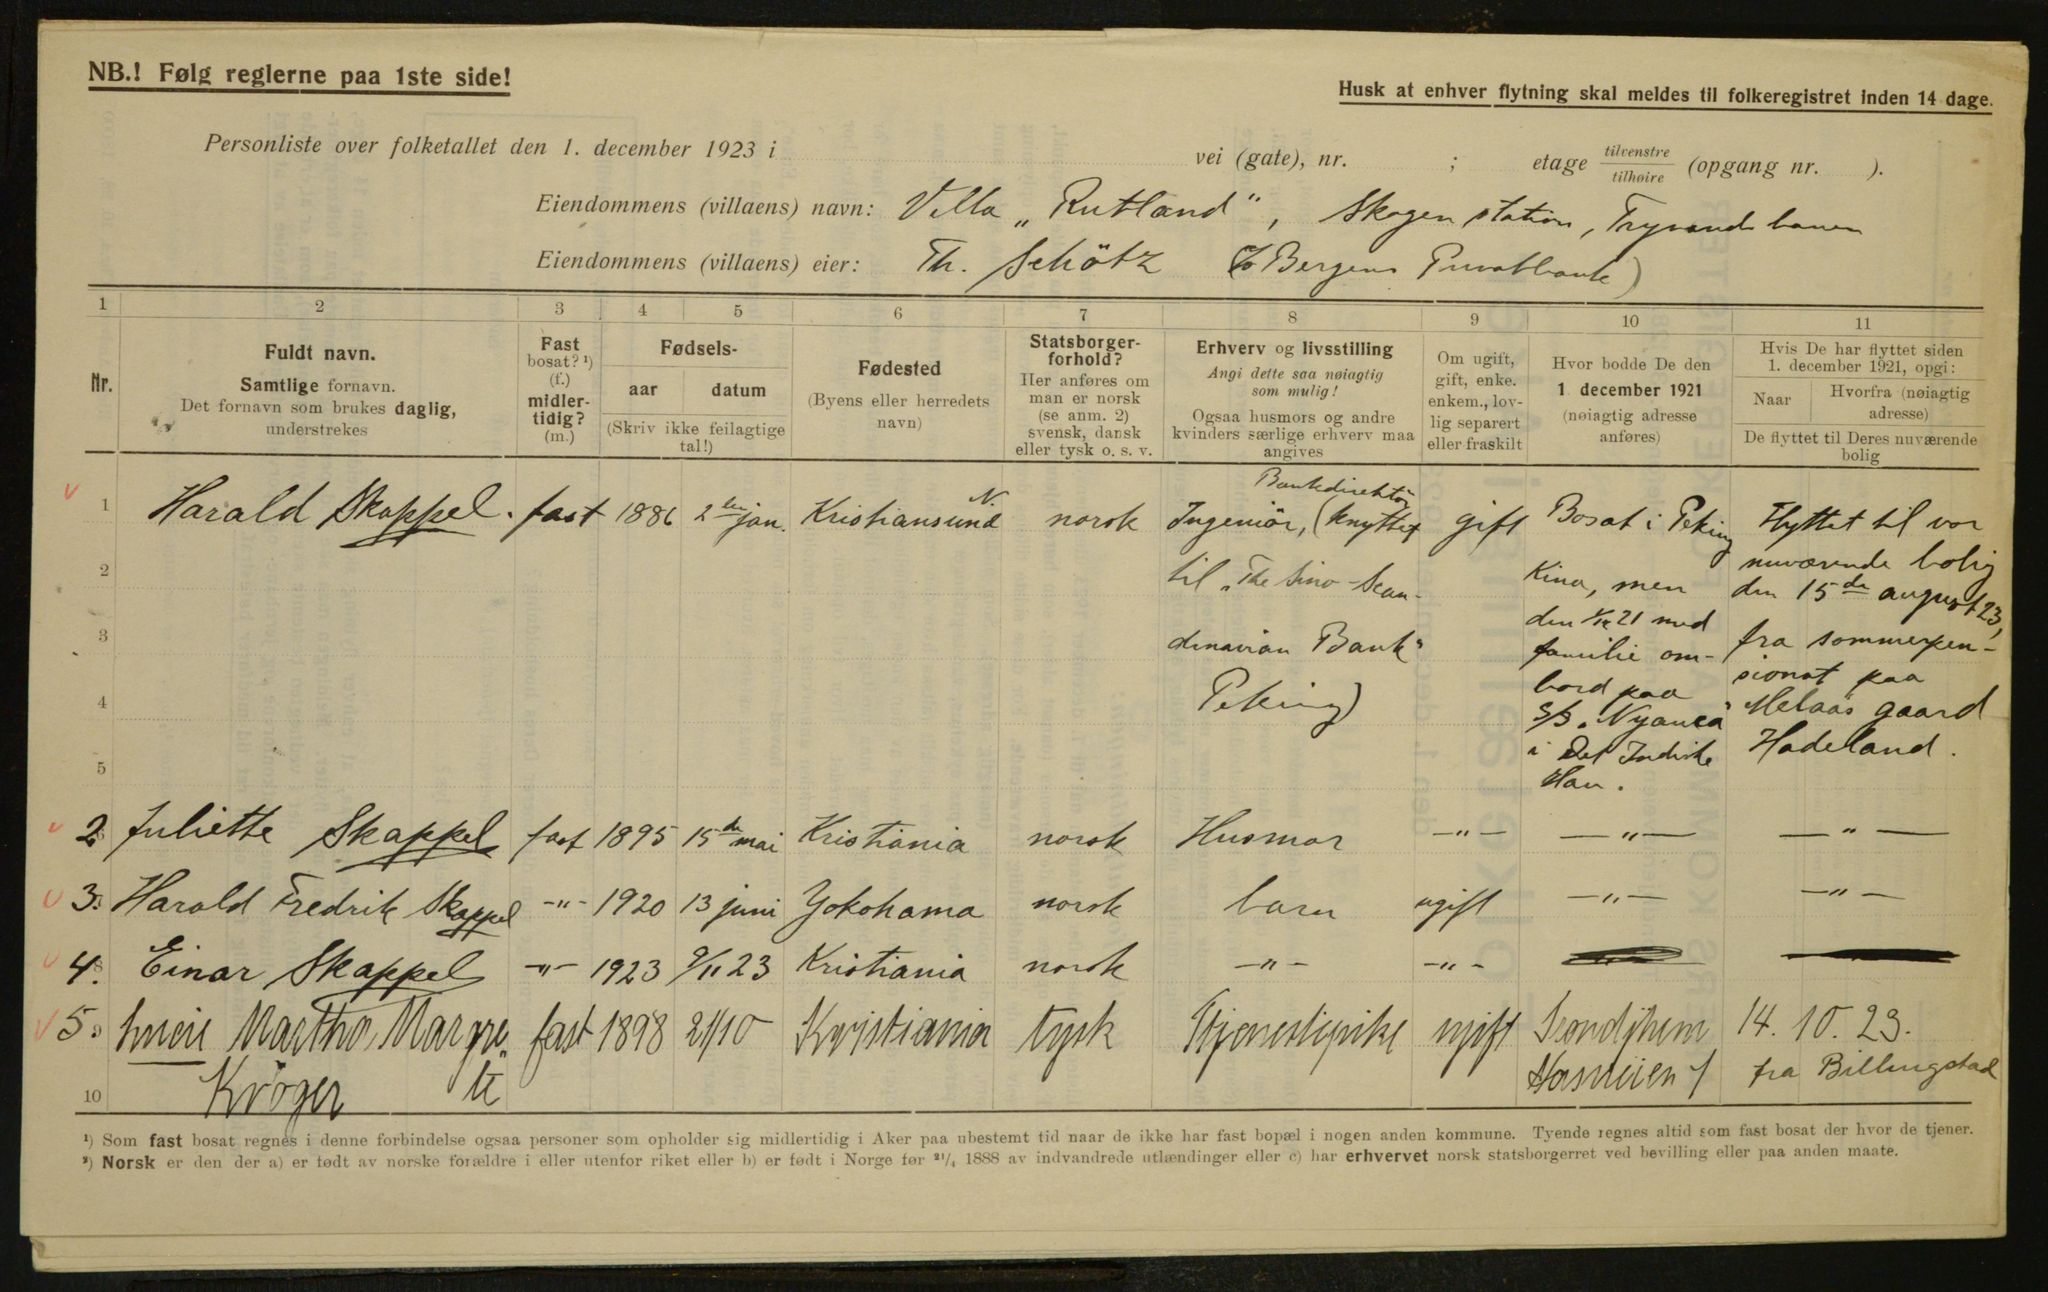 NB.! Følg reglerne paa 1ste side!
Husk at enhver flytning skal meldes til folkeregistret inden 14 dage.
Personliste over folketallet den 1. december 1923 i vei (gate), nr. ; etage tilvenstre / tilhøire (opgang nr. ).
Eiendommens (villaens) navn: Villa „Rutland", Skogen station, Tryvandsbanen
Eiendommens (villaens) eier: Th. Schötz (c/o Bergens Privatbank)
1 2 3 4 5 6 7 8 9 10 11
Nr.
Fuldt navn.
Samtlige fornavn.
Det fornavn som brukes daglig,
understrekes
Fast
bosat? ¹)
(f.)
midler-
tidig?
(m.)
Fødsels-
aar datum
(Skriv ikke feilagtige
tal!)
Fødested
(Byens eller herredets
navn)
Statsborger-
forhold?
Her anføres om
man er norsk
(se anm. 2)
svensk, dansk
eller tysk o. s. v.
Erhverv og livsstilling
Angi dette saa nøiagtig
som mulig!
Ogsaa husmors og andre
kvinders særlige erhverv maa
angives
Om ugift,
gift, enke.
enkem., lov-
lig separert
eller fraskilt
Hvor bodde De den
1. december 1921
(nøiagtig adresse
anføres)
Hvis De har flyttet siden
1. december 1921, opgi:
Naar Hvorfra (nøiagtig
adresse)
De flyttet til Deres nuværende
bolig
1 Harald Skappel. fast 1886 2den jan. Kristiansund N. norsk
Bankdirektör
Ingeniör, (knyttet
til „The Sino-Scan-
dinavian Bank"
Peking)
gift
Bosat i Peking
Kina, men
den 1/12 21 med
familie om-
bord paa
S/S „Nyanca"
i Det Indiske
Hav.
Flyttet til vor
nuværende bolig
den 15de august 23,
fra sommerpen-
sionat paa
Melaas gaard
Hadeland.
2
3
4
5
2 Juliette Skappel fast 1895 15de mai Kristiania norsk Husmor —"— —"— —"—
3. Harald Fredrik Skappel -"- 1920 13 juni Yokohama norsk barn ugift —"— —"—
4. Einar Skappel -"- 1923 9/11 23 Kristiania norsk —"— -"-
5. Lucie Martha Margre- fast 1898 21/10 Kristiania tysk Tjenestepike ugift Trondhjem 14. 10. 23.
10 Kröger te fra Billingstad
¹) Som fast bosat regnes i denne forbindelse ogsaa personer som opholder sig midlertidig i Aker paa ubestemt tid naar de ikke har fast bopæl i nogen anden kommune. Tyende regnes altid som fast bosat der hvor de tjener.
²) Norsk er den der a) er født av norske forældre i eller utenfor riket eller b) er født i Norge før 21/4 1888 av indvandrede utlændinger eller c) har erhvervet norsk statsborgerret ved bevilling eller paa anden maate.